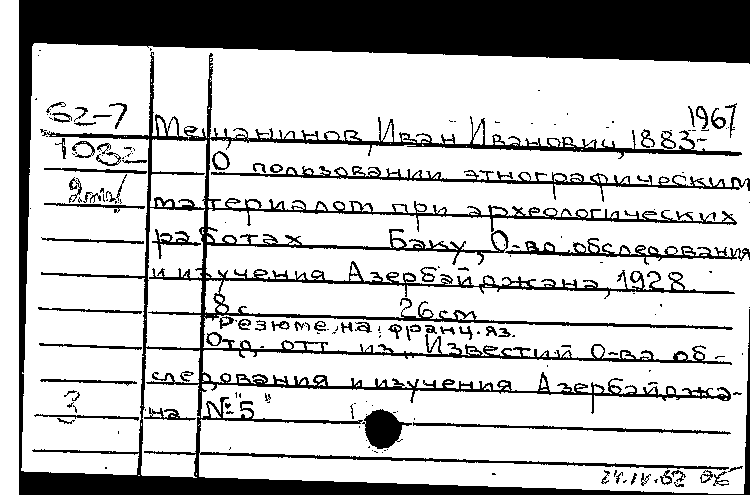 1967
62-7 Мещанинов, Иван Иванович, 1883-
1082 О пользовании этнографическим
материалом при археологических
работах Баку, О-во обследования
и изучения Азербайджана, 1928.
8 с 26 cm
Резюме на франц. яз.
Отд. отт из „Известий О-ва об-
следования и изучения Азербайджа-
3 на № 5"
24.IV.62